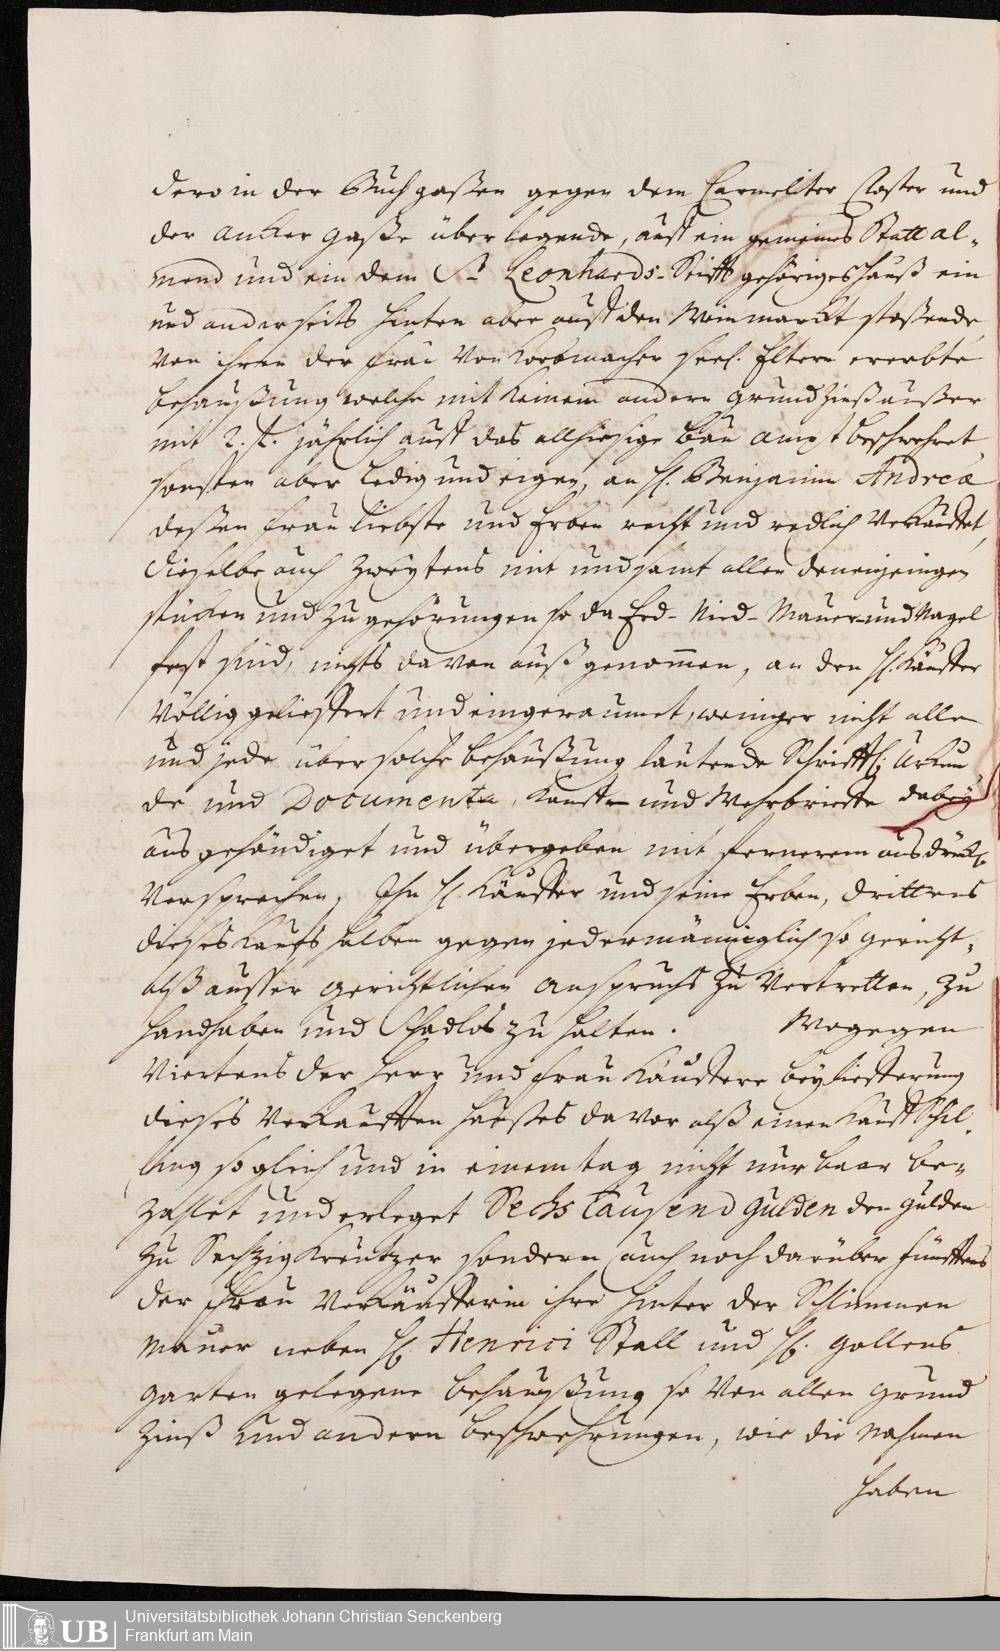 dero in der Buchgaßen gegen dem Carmeliter Closter und
der Ancker gaße über legende, auff ein gemeines Statt al-
mend und ein dem St. Leonhards-Stifft gehöriges hauß ein
und anderseits hinten aber auff den Weinmarckt stoßende
von ihren der frau von Korbmacher seel. Eltern ererbte
behaußung welche mit keinem andern grund Zinß außer
mit 2. f. jährlich auff das allhiesige bau ampt beschwehret
sonsten aber ledig und eigen, an H. Benjamin Andreæ
deßen frau liebste und Erben recht und redlich verkauffet,
dieselbe auch Zweytens mit und samt allen denenjenigen
stücken und Zugehörungen so da Erd- Nied- Mauer- und Nagel
fest sind, nichts davon außgenommen, an den H. Käuffer
völlig gelieffert und eingeraumet, weniger nicht alle
und jede über solche behaußung lautende Schrifftl. Urkun
de und Documenta, Kauff- und Wehrbrieffe dabey
ausgehändiget und übergeben mit fernerem ausdrückl.
Versprechen, Ihn H. Käuffer und seine Erben, drittens
dieses Kaufs halben gegen jedermänniglich so gericht-
alß ausser gerichtlichen Anspruchs zu Vertretten, zu
handhaben und Schadlos zu halten. Wogegen
Viertens der Herr und frau Käuffere bey Liefferung
dieses verkaufften haußes davor alß einen Kauff Schil-
ling sogleich und in einem tag nicht nur baar be-
zahlet und erleget Sechs Tausend Gulden den gulden
zu Sechzig Kreutzer sondern auch noch darüber fünfftens
der Frau Verkäufferin ihre hinter der Schlimmen
Mauer neben H. Henrici Stall und H. Gollens
garten gelegene behaußung so von allen grund
Zinß und andern beschwehrungen, wie die Nahmen
haben
Universitätsbibliothek Johann Christian Senckenberg
UB
Frankfurt am Main